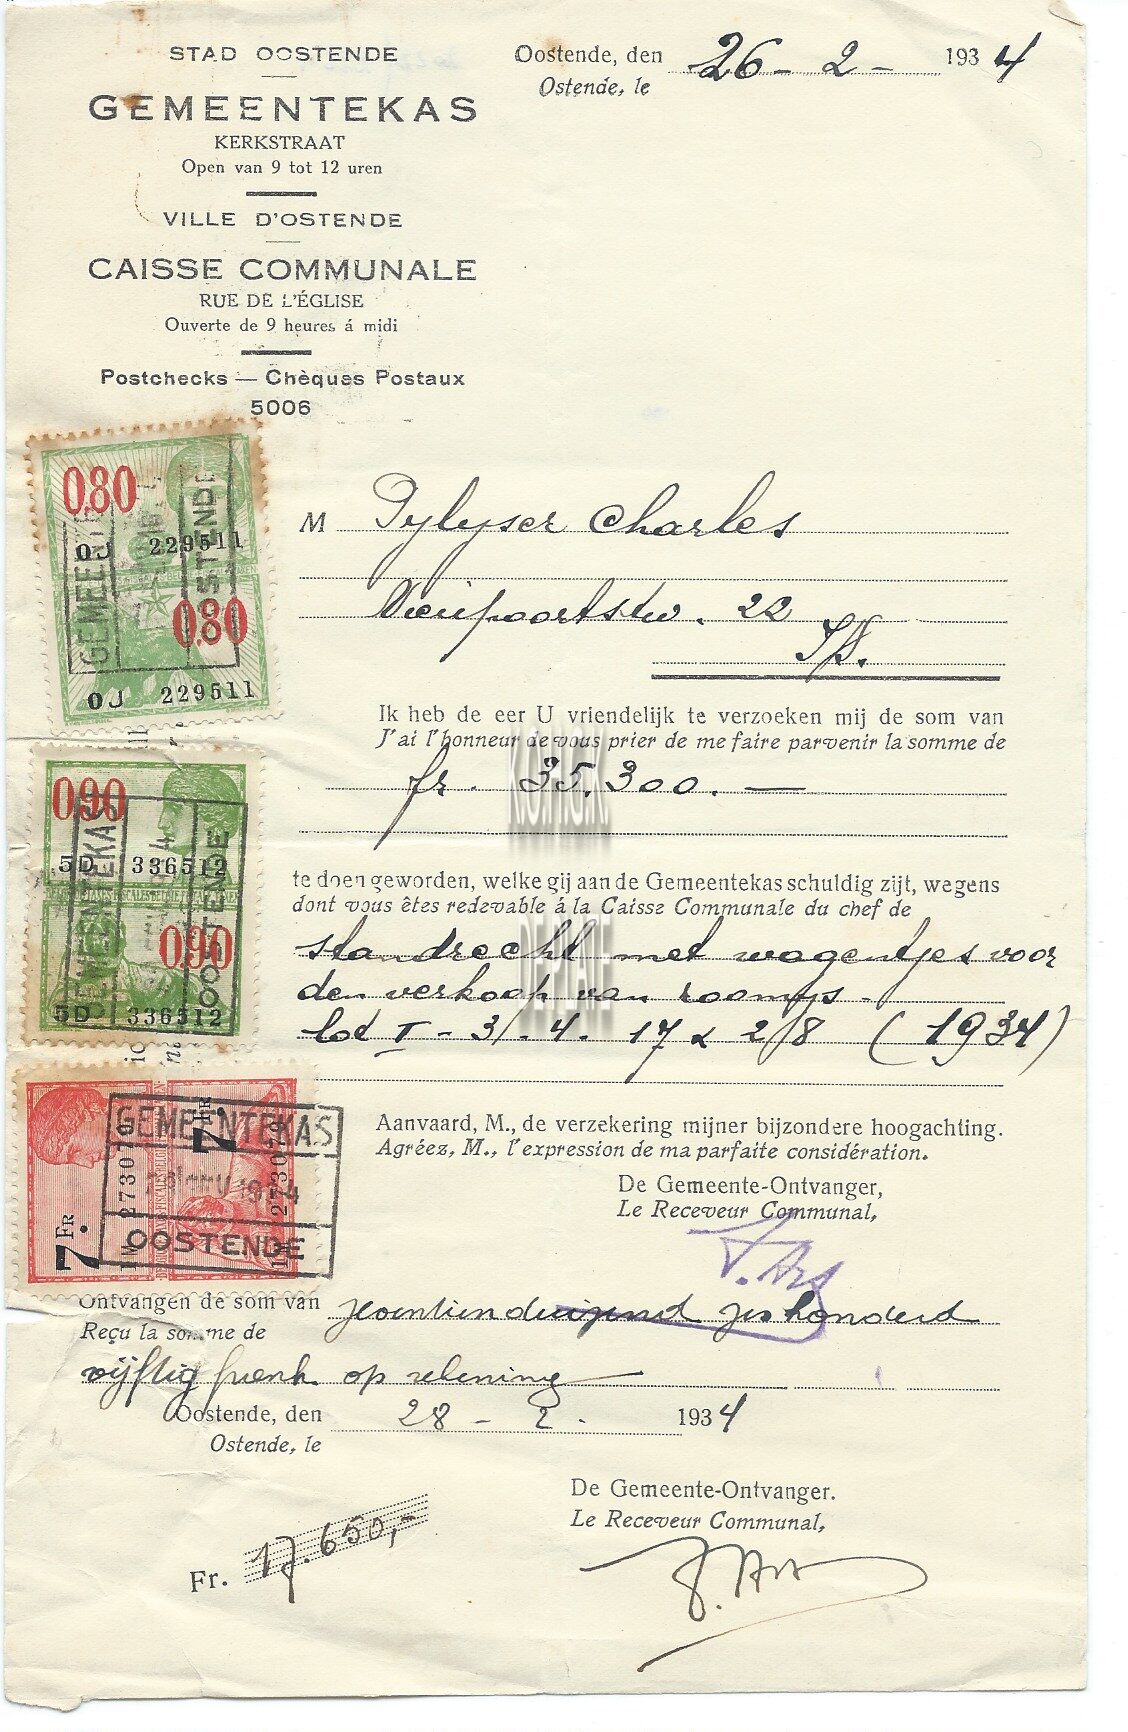 STAD OOSTENDE
GEMEENTEKAS
KERKSTRAAT
Open van 9 tot 12 uren
VILLE D'OSTENDE
CAISSE COMMUNALE
RUE DE L'ÉGLISE
Ouverte de 9 heures á midi
Postchecks — Chèques Postaux
5006
Oostende, den 26 - 2 - 1934
Ostende, le
0.80
OJ 229511
0.80
OJ 229511
GEMEENTEKAS
OOSTENDE
M Pylyser Charles
Nieupoortstw. 22
Ik heb de eer U vriendelijk te verzoeken mij de som van
J'ai l'honneur de vous prier de me faire parvenir la somme de
fr. 35.300. —
KOPHOK
0.90
5D 336512
0.90
5D 336512
GEMEENTEKAS
OOSTENDE
te doen geworden, welke gij aan de Gemeentekas schuldig zijt, wegens
dont vous êtes redevable á la Caisse Communale du chef de
DELETE
standrecht met wagentjes voor
den verkoop van roomijs -
lot I - 3/. 4. 17 & 2/8 (1934)
7 FR.
7 FR.
273070
273070
GEMEENTEKAS
OOSTENDE
Aanvaard, M., de verzekering mijner bijzondere hoogachting.
Agréez, M., l'expression de ma parfaite considération.
De Gemeente-Ontvanger,
Le Receveur Communal,
Ontvangen de som van zeventienduizend zeshonderd
Reçu la somme de
vijftig frank op rekening
Oostende, den 28 - 2 - 1934
Ostende, le
De Gemeente-Ontvanger.
Le Receveur Communal,
Fr. 17.650,-